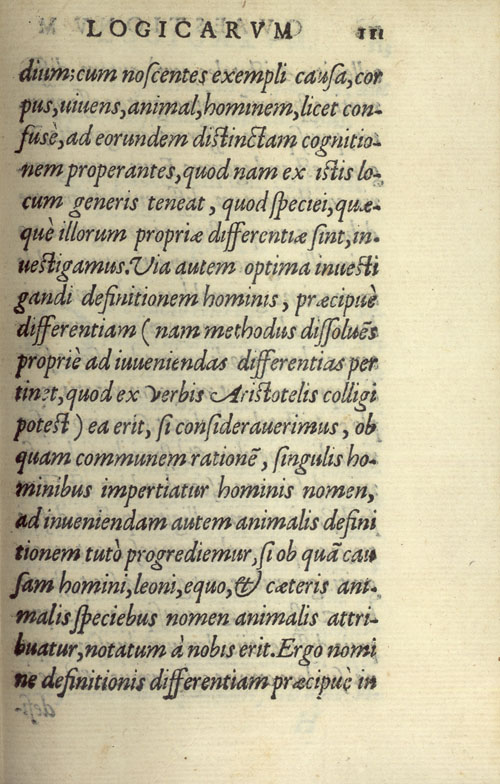 LOGICARVM 111
dium: cum noſcentes exempli cauſa, cor
pus, uiuens, animal, hominem, licet con-
fuſè, ad eorundem diſtinctam cognitio-
nem properantes, quod nam ex iſtis lo-
cum generis teneat, quod ſpeciei, quæ-
què illorum propriæ differentiæ ſint, in-
ueſtigamus. Via autem optima inueſti
gandi definitionem hominis, præcipuè
differentiam ( nam methodus diſſoluẽs
propriè ad iuueniendas differentias per
tinet, quod ex verbis Ariſtotelis colligi
poteſt ) ea erit, ſi conſiderauerimus, ob
quam communem rationẽ, ſingulis ho-
minibus impertiatur hominis nomen,
ad inueniendam autem animalis defini
tionem tutò progrediemur, ſi ob quã cau
ſam homini, leoni, equo, & cæteris ani-
malis ſpeciebus nomen animalis attri-
buatur, notatum à nobis erit. Ergo nomi
ne definitionis differentiam præcipuè in